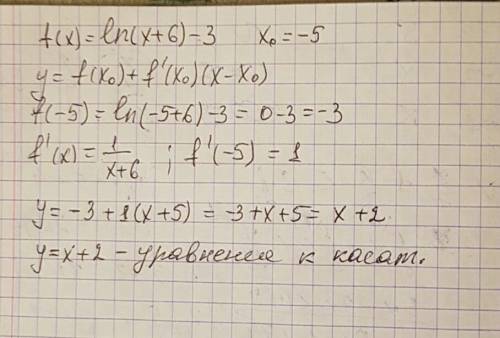 f(x)=ln(x+6)-3 x₀=-5
y=f(x₀)+f'(x₀)(x-x₀)
f(-5)=ln(-5+6)-3=0-3=-3
f'(x)=1/(x+6) ; f'(-5)=1
y=-3+1(x+5)=-3+x+5=x+2
y=x+2 - уравнение к касат.